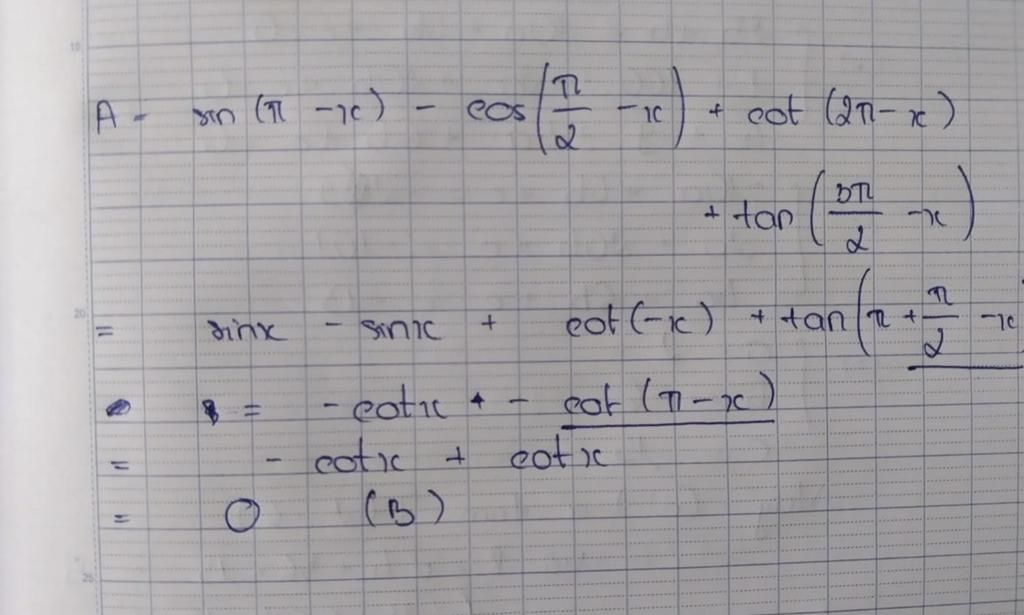 10
A = sin (π - x) - cos (π/2 - x) + cot (2π - x)
+ tan (3π/2 - x)
20
= sinx - sinx + cot (-x) + tan (π + π/2 - x
= - cotx + - cot (π - x)
= - cotx + cotx
= 0 (B)
25